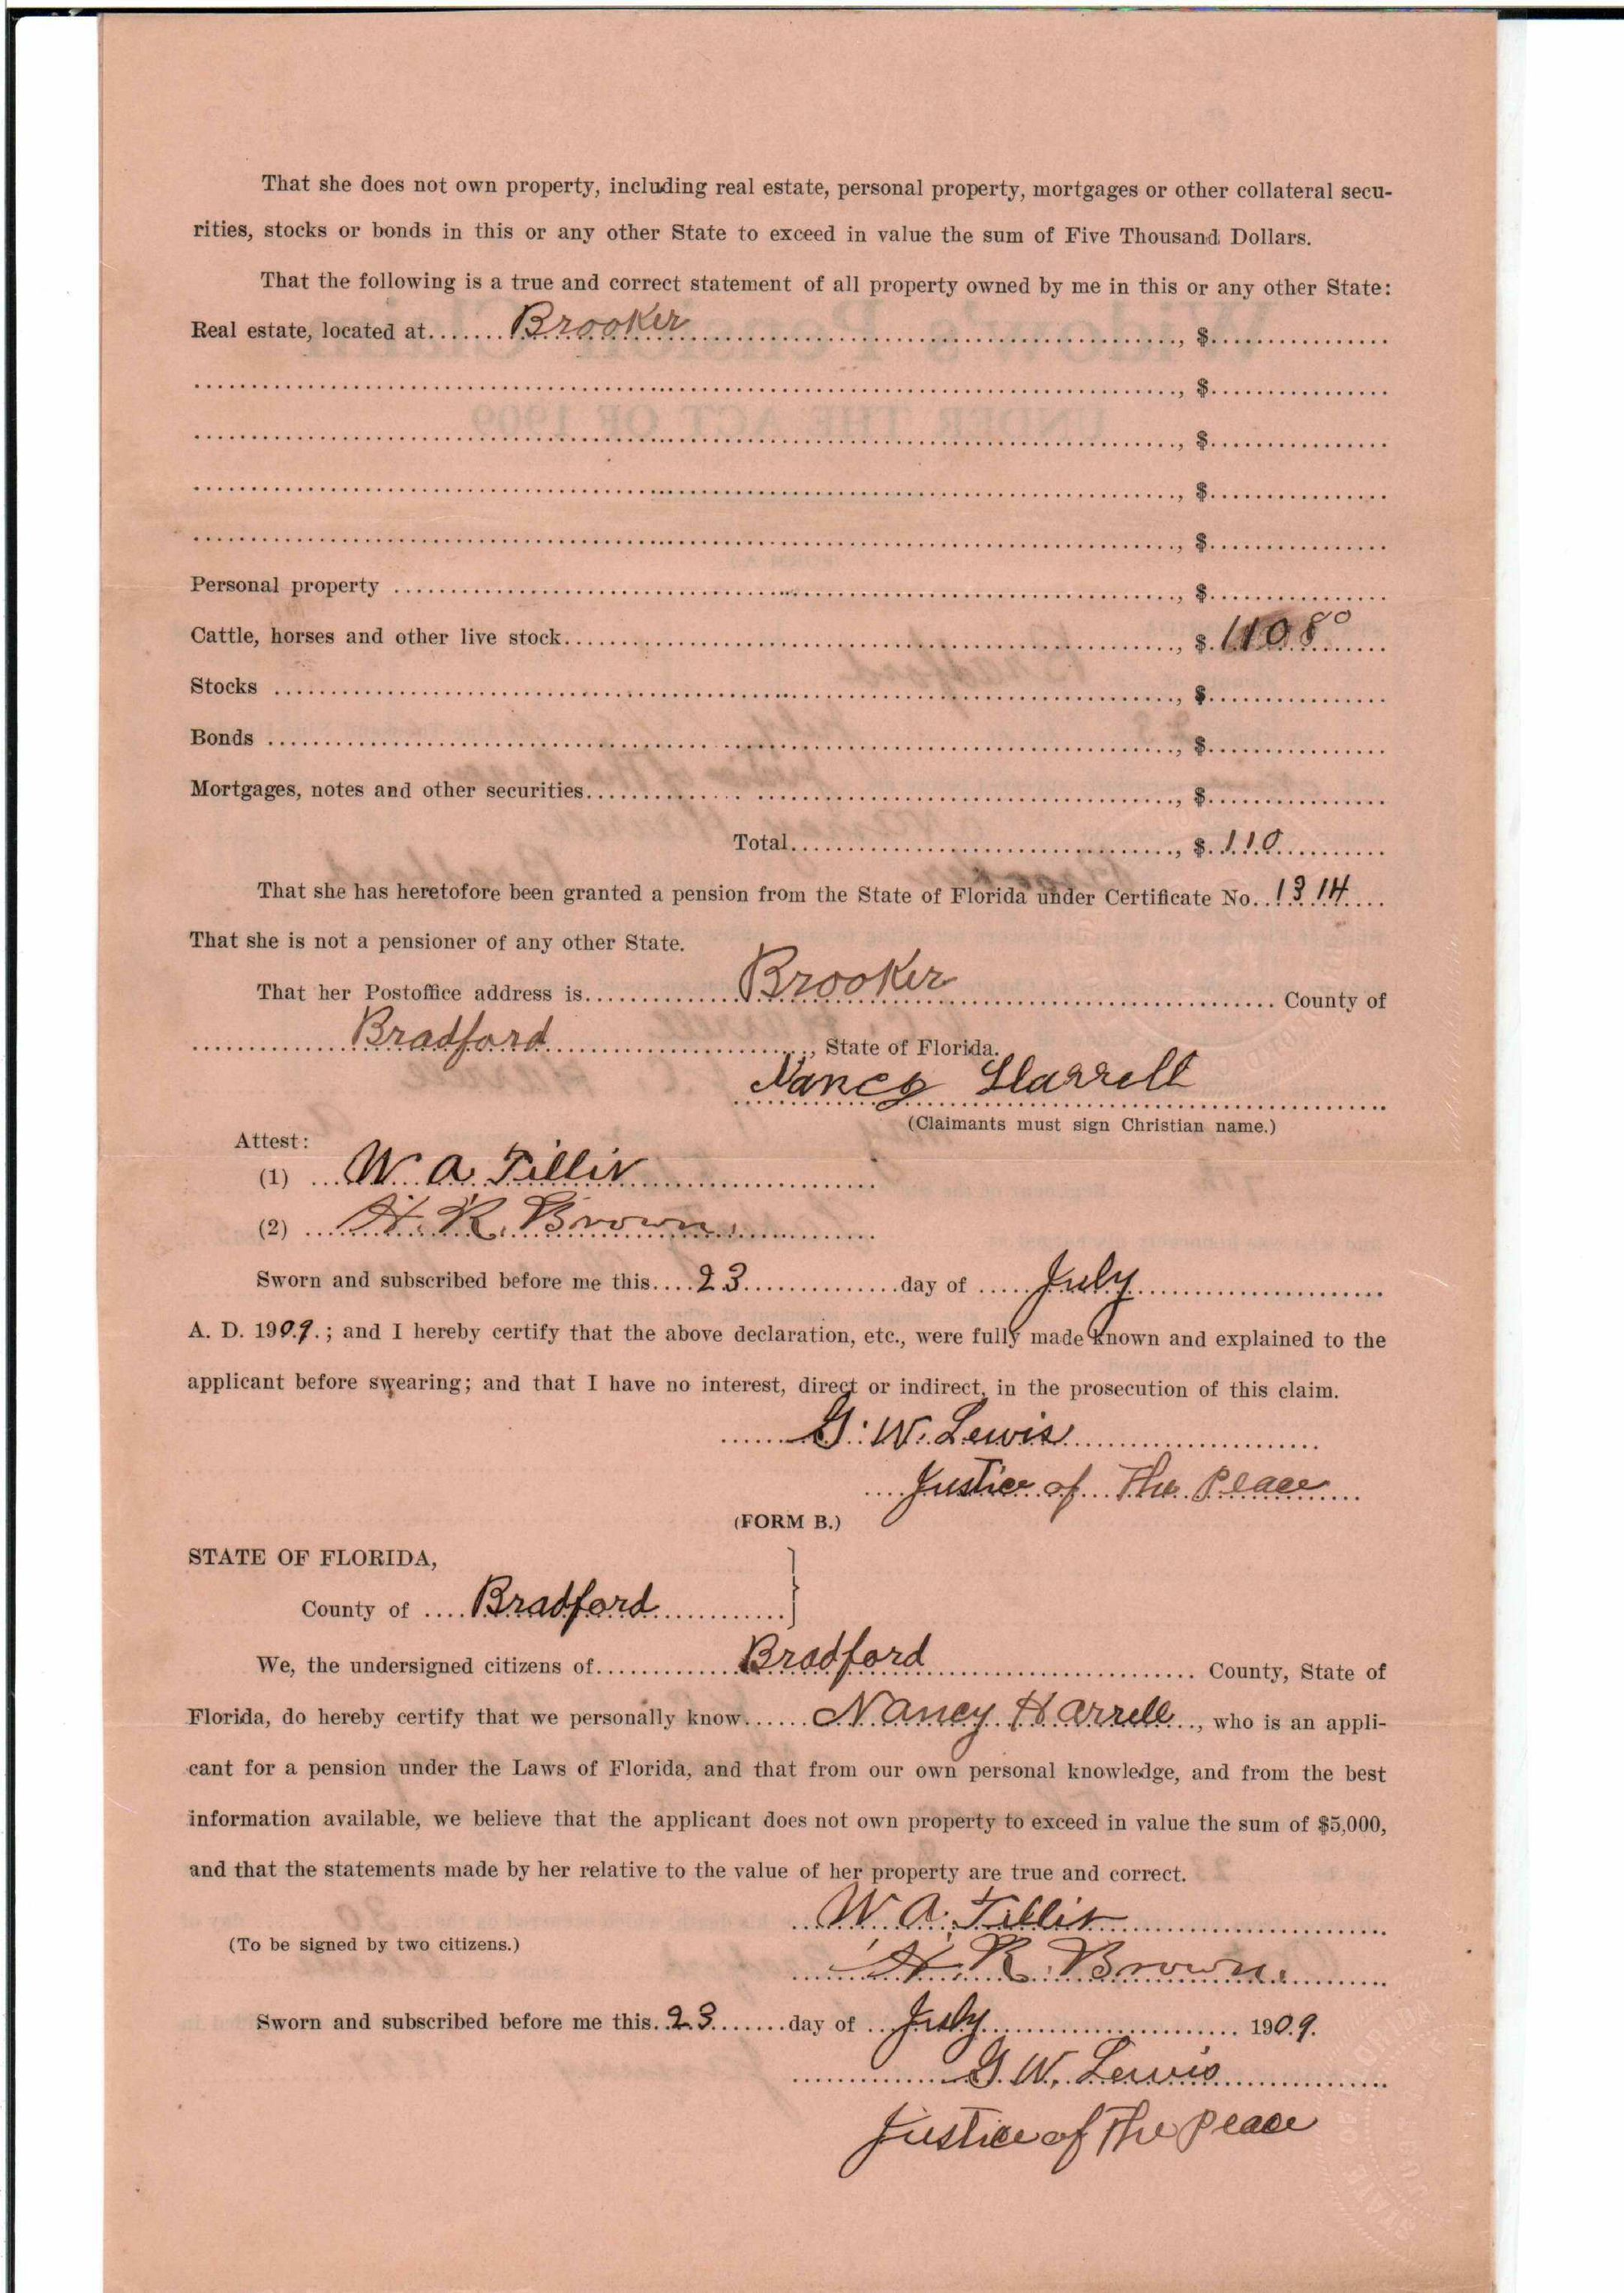 That she does not own property, including real estate, personal property, mortgages or other collateral secu-
rities, stocks or bonds in this or any other State to exceed in value the sum of Five Thousand Dollars.
That the following is a true and correct statement of all property owned by me in this or any other State:
Real estate, located at Brooker, $
, $
, $
, $
, $
Personal property, $
Cattle, horses and other live stock, $
Stocks, $
Bonds, $
Mortgages, notes and other securities, $
Total, $ 110
That she has heretofore been granted a pension from the State of Florida under Certificate No. 1314
That she is not a pensioner of any other State.
That her Postoffice address is Brooker County of
Bradford, State of Florida.
Nancy Harrell
(Claimants must sign Christian name.)
Attest:
(1) W. A. Tillis
(2) H. R. Brown.
Sworn and subscribed before me this 23 day of July
A. D. 1909.; and I hereby certify that the above declaration, etc., were fully made known and explained to the
applicant before swearing; and that I have no interest, direct or indirect, in the prosecution of this claim.
G. W. Lewis
Justice of The Peace
(FORM B.)
STATE OF FLORIDA,
County of Bradford
We, the undersigned citizens of Bradford County, State of
Florida, do hereby certify that we personally know Nancy Harrell, who is an appli-
cant for a pension under the Laws of Florida, and that from our own personal knowledge, and from the best
information available, we believe that the applicant does not own property to exceed in value the sum of $5,000,
and that the statements made by her relative to the value of her property are true and correct.
W. A. Tillis
(To be signed by two citizens.)
H. R. Brown.
Sworn and subscribed before me this 23 day of July 1909.
G. W. Lewis
Justice of The Peace